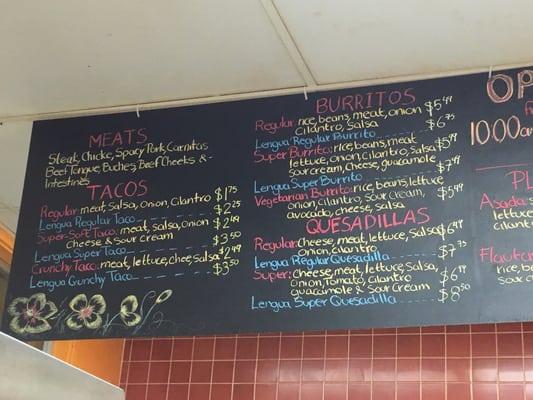 MEATS
Steak, Chicke, Spacy Pork, Carnitas
Beef Tongue, Buches, Beef Cheeks &-
Intestines
TACOS
Regular: meat, salsa, onion, Cilantro $1.75
Lengua Regular Taco $2.25
Super-Soft Taco: meat, salsa, onion $2.49
Cheese & Sour Cream
Lengua Super Taco $3.50
Crunchy Taco: meat, lettuce, chee, salsa $2.49
Lengua Cunchy Taco $3.50
BURRITOS
Regular: rice, beans, meat, onion $5.49
Cilantro, Salsa
Lengua Regular Burrito $6.75
Super Burrito: rice, beans, meat, $5.99
lettuce, onion, cilantro, salsa
sour cream, cheese, guacamole
Lengua Super Burrito $7.49
Vegetarian Burrito: rice, beans, lettuce $5.49
onion, cilantro, sour cream,
avocado, cheese, salsa
QUESADILLAS
Regular: cheese, meat, lettuce, salsa $6.49
Onion, cilantro
Lengua Regular Quesadilla $7.75
Super: cheese, meat, lettuce, salsa,
Onion, Tomato, cilantro $6.99
guacamole & Sour Cream
Lengua Super Quesadilla $8.50
OP
1000 a
PL
Asada:
lettuc
cilant
Flautas
rice, be
sour c